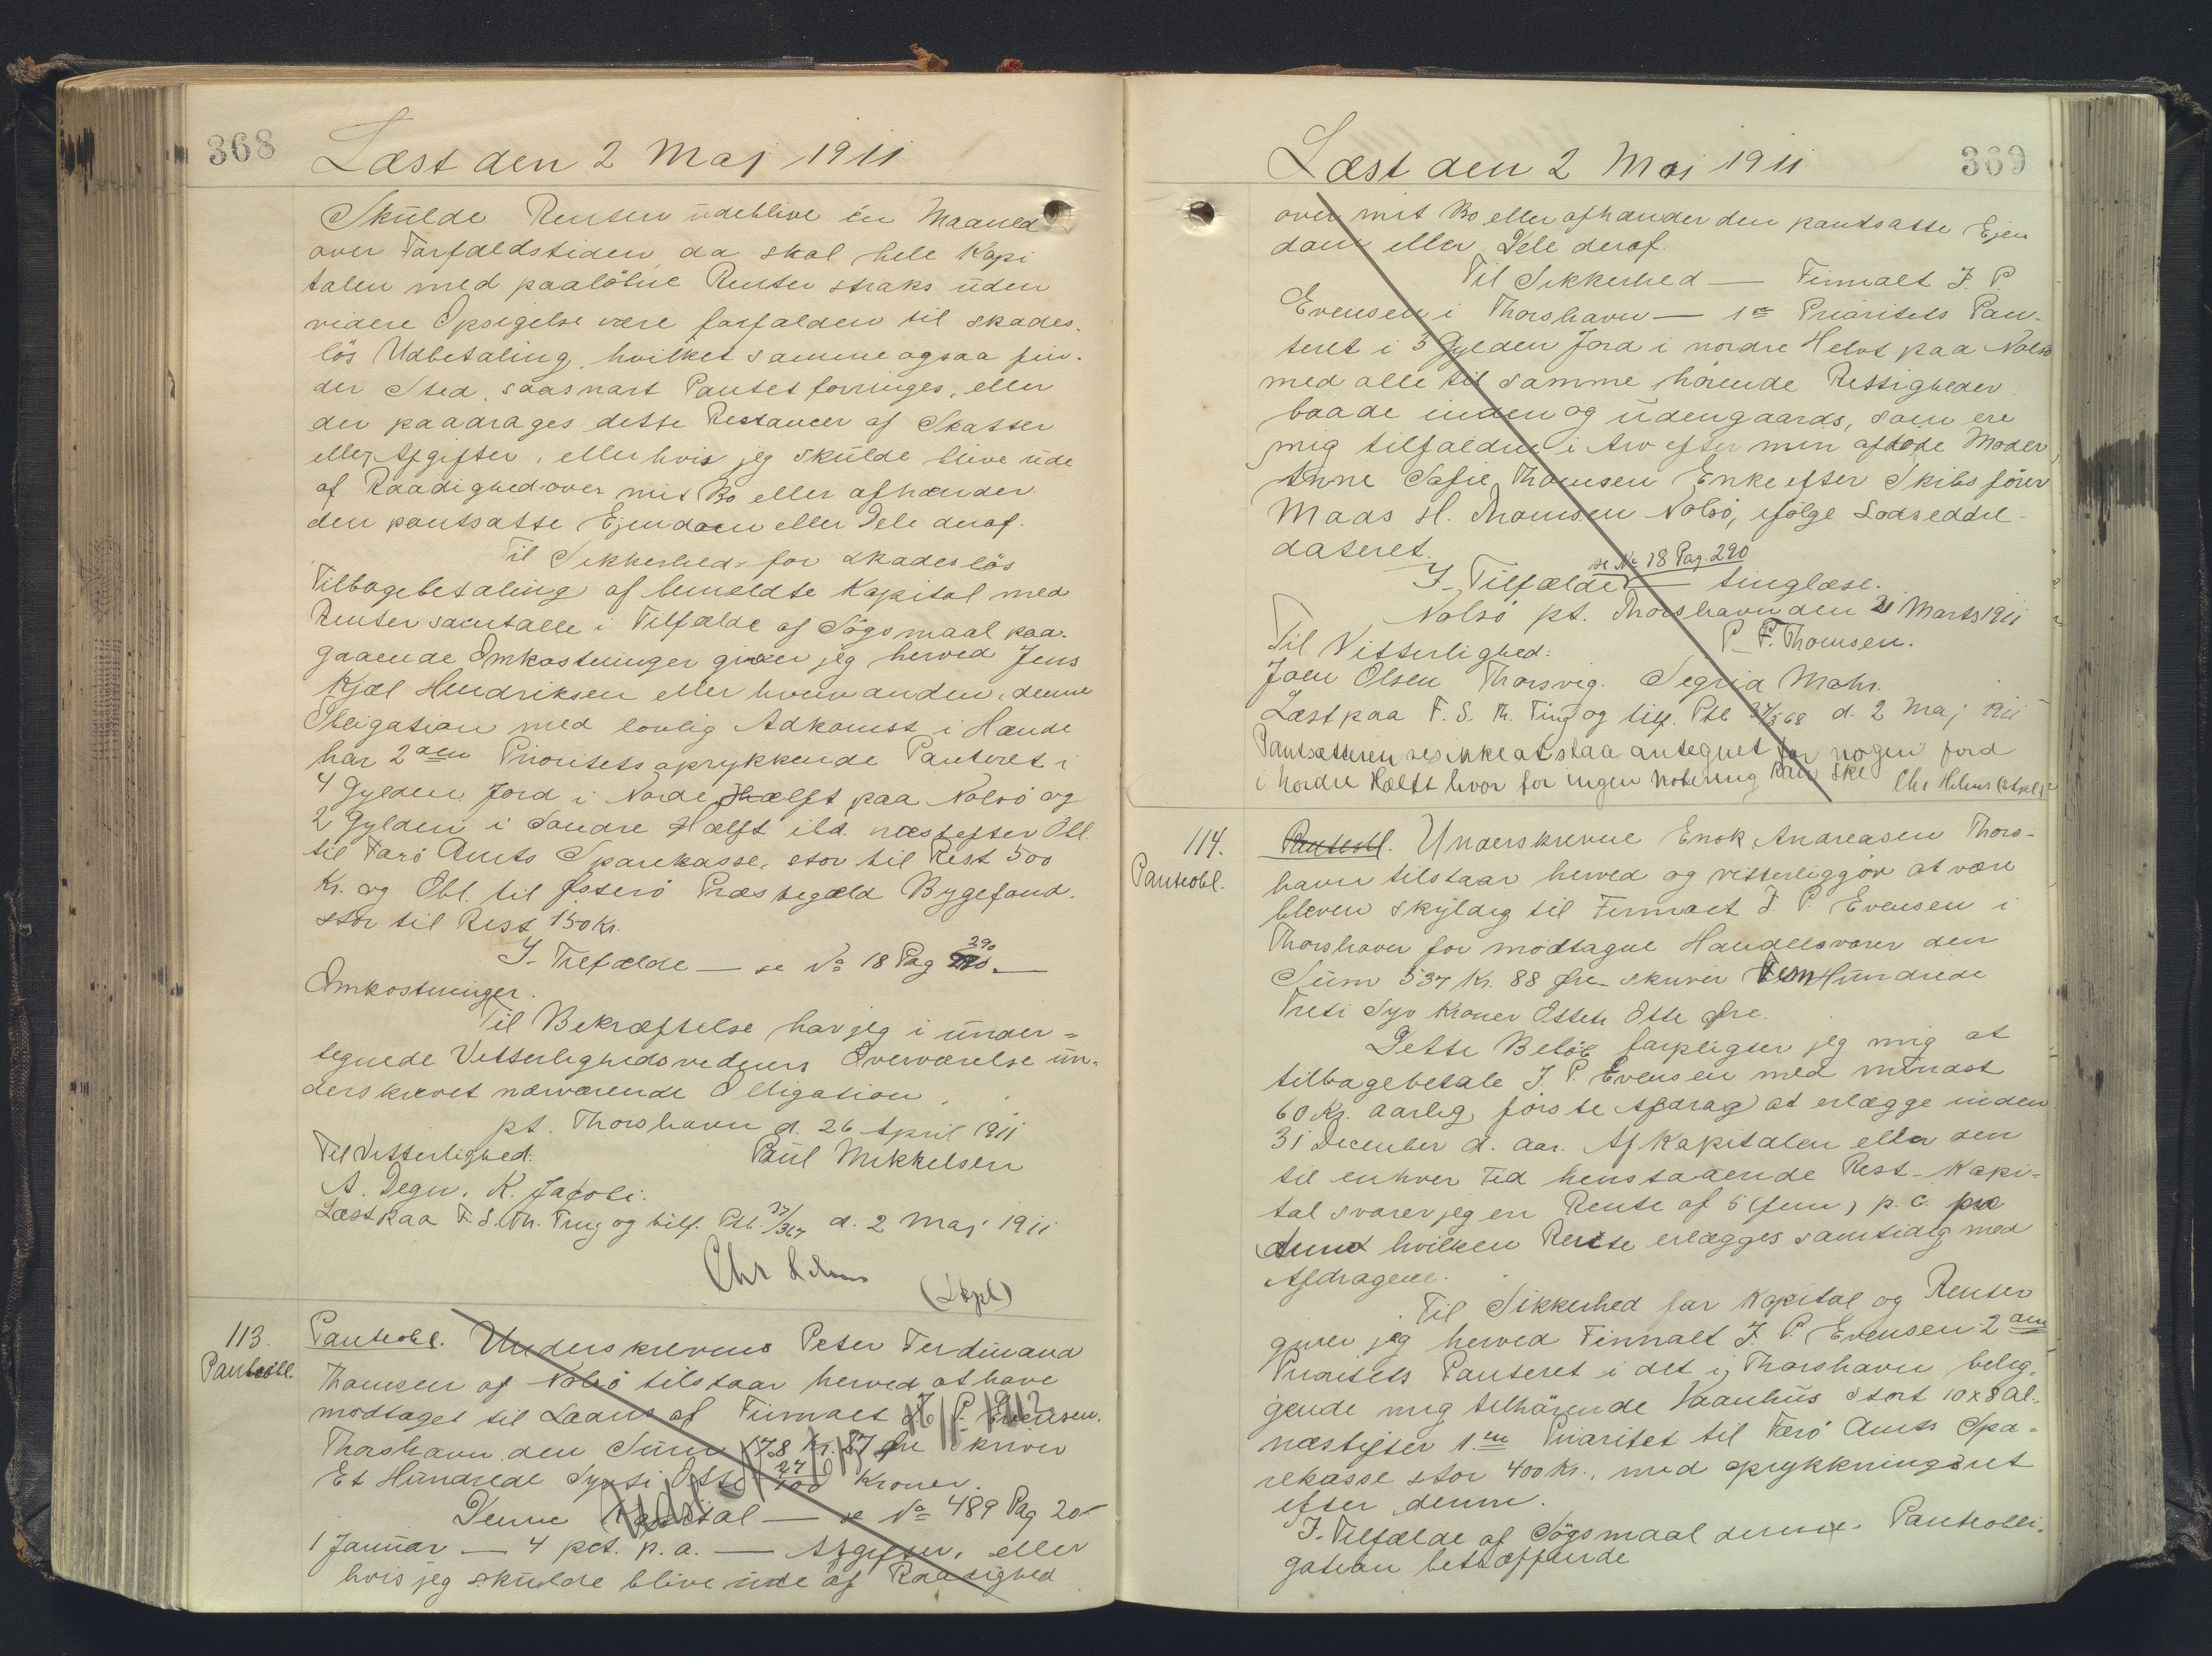 368
Læst den 2 Maj 1911
Skulde Renten udeblive én Maaned
over Forfaldstiden, da skal hele Kapi
talen med paaløbne Renter straks uden
videre Opsigelse være forfalden til skades-
løs Udbetaling, hvilket samme ogsaa fin-
der Sted, saasnart Pantet forringes, eller
der paadrages dette Restancer af Skatter
eller Afgifter, eller hvis jeg skulde blive ude
af Raadighed over mit Bo eller afhænder
den pantsatte Ejendom eller Dele deraf.
Til Sikkerhed for skadesløs
Tilbagebetaling af bemeldte Kapital med
Renter samt alle i Tilfælde af Søgsmaal paa-
gaaende Omkostninger giver jeg herved Jens
Kjæl Hendriksen eller hvem anden, denne
Obligation med lovlig Adkomst i Hænde
har 2den Prioritets oprykkende Panteret i
4 Gylden Jord i Nordre Hælft paa Nolsö og
2 Gylden i Søndre Hælft ibd. næstefter Obl.
til Færö Amts Sparekasse, stor til Rest 500
Kr. og Obl. til Østerö Præstegæld Byggefond.
stor til Rest 150 Kr.
I Tilfælde — se No 18 Pag 290 —
Omkostninger.
Til Bekræftelse har jeg i under-
tegnede Vitterlighedsvidners Overværelse un-
derskrevet nærværende Obligation.
pt. Thorshavn d. 26 April 1911
Til Vitterlighed: Poul Mikkelsen
A. Degn. K. Jacobi.
Læst paa F. S. Th. Ting og tilf. Ptb. 37/367 d. 2 Maj 1911
(Stpl)
113.
Panteobl.
Panteobl. Underskrevne Peter Ferdinand
Thomsen af Nolsö tilstaar herved at have
modtaget til Laans af Firmaet J. P. Evensen.
Thorshavn den Sum 178 Kr. 27 Øre skriver
Et Hundrede Sytti Otte 27/100 Kroner.
Denne Kapital — se No 489 Pag 20
1 Januar — 4 pct. p. a. — Afgifter, eller
hvis jeg skulde blive ude af Raadighed
369
Læst den 2 Maj 1911
over mit Bo eller afhænder den pantsatte Ejen
dom eller Dele deraf.
Til Sikkerhed — Firmaet J. P.
Evensen i Thorshavn — 1ste Prioritets Pan-
teret i 5 Gylden Jord i nordre Helvt paa Nolsö
med alle til samme hørende Rettigheder
baade inden og udengaards, som ere
mig tilfalden i Arv efter min afdøde Moder,
Anne Sofie Thomsen Enke efter Skibsfører
Maas H. Thomsen Nolsö, ifølge Lodseddel
dateret.
se No 18 Pag. 290
I Tilfælde — tinglæse.
Nolsö pt. Thorshavn den 21 Marts 1911
Til Vitterlighed: P. F. Thomsen.
Joen Olsen Thorsvig. Segria Mohr.
Læst paa F. S. Th. Ting og tilf. Ptb 37/368 d. 2 Maj 1911
Pantsætteren ses ikke at staa antegnet for nogen Jord
i Nordre Hælft hvorfor ingen notering kan ske
114.
Panteobl.
Panteobl. Underskrevne Enok Andreasen Thors-
havn tilstaar herved og vitterliggør at være
bleven skyldig til Firmaet J. P. Evensen i
Thorshavn for modtagne Handelsvarer den
Sum 537 Kr. 88 Øre skriver Fem Hundrede
Treti Syv Kroner Otteti Otte Øre.
Dette Beløb forpligter jeg mig at
tilbagebetale J. P. Evensen med mindst
60 Kr. aarlig, første Afdrag at erlægge inden
31 December d. Aar. Af Kapitalen eller den
til enhver Tid henstaaende Rest-Kapi-
tal svarer jeg en Rente af 5 (fem) p. C. pro
anno hvilken Rente erlægges samtidig med
Afdragene.
Til Sikkerhed for Kapital og Renter
giver jeg herved Firmaet J. P. Evensen 2den
Prioritets Panteret i det i Thorshavn belig-
gende mig tilhørende Vaanhus stort 10 x 8 Al.
næstefter 1.ste Prioritet til Færö Amts Spa-
rekasse stor 400 Kr., med oprykningsret
efter denne.
I Tilfælde af Søgsmaal denne Panteobli-
gation betræffende